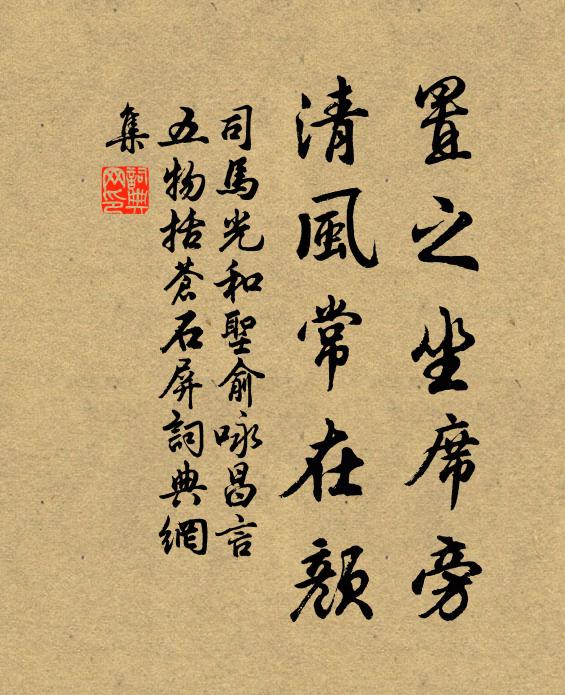 置之坐席旁
清風常在顏
司馬光和聖俞咏昌言
五物括蒼石屏詞典網
集
詞典網印